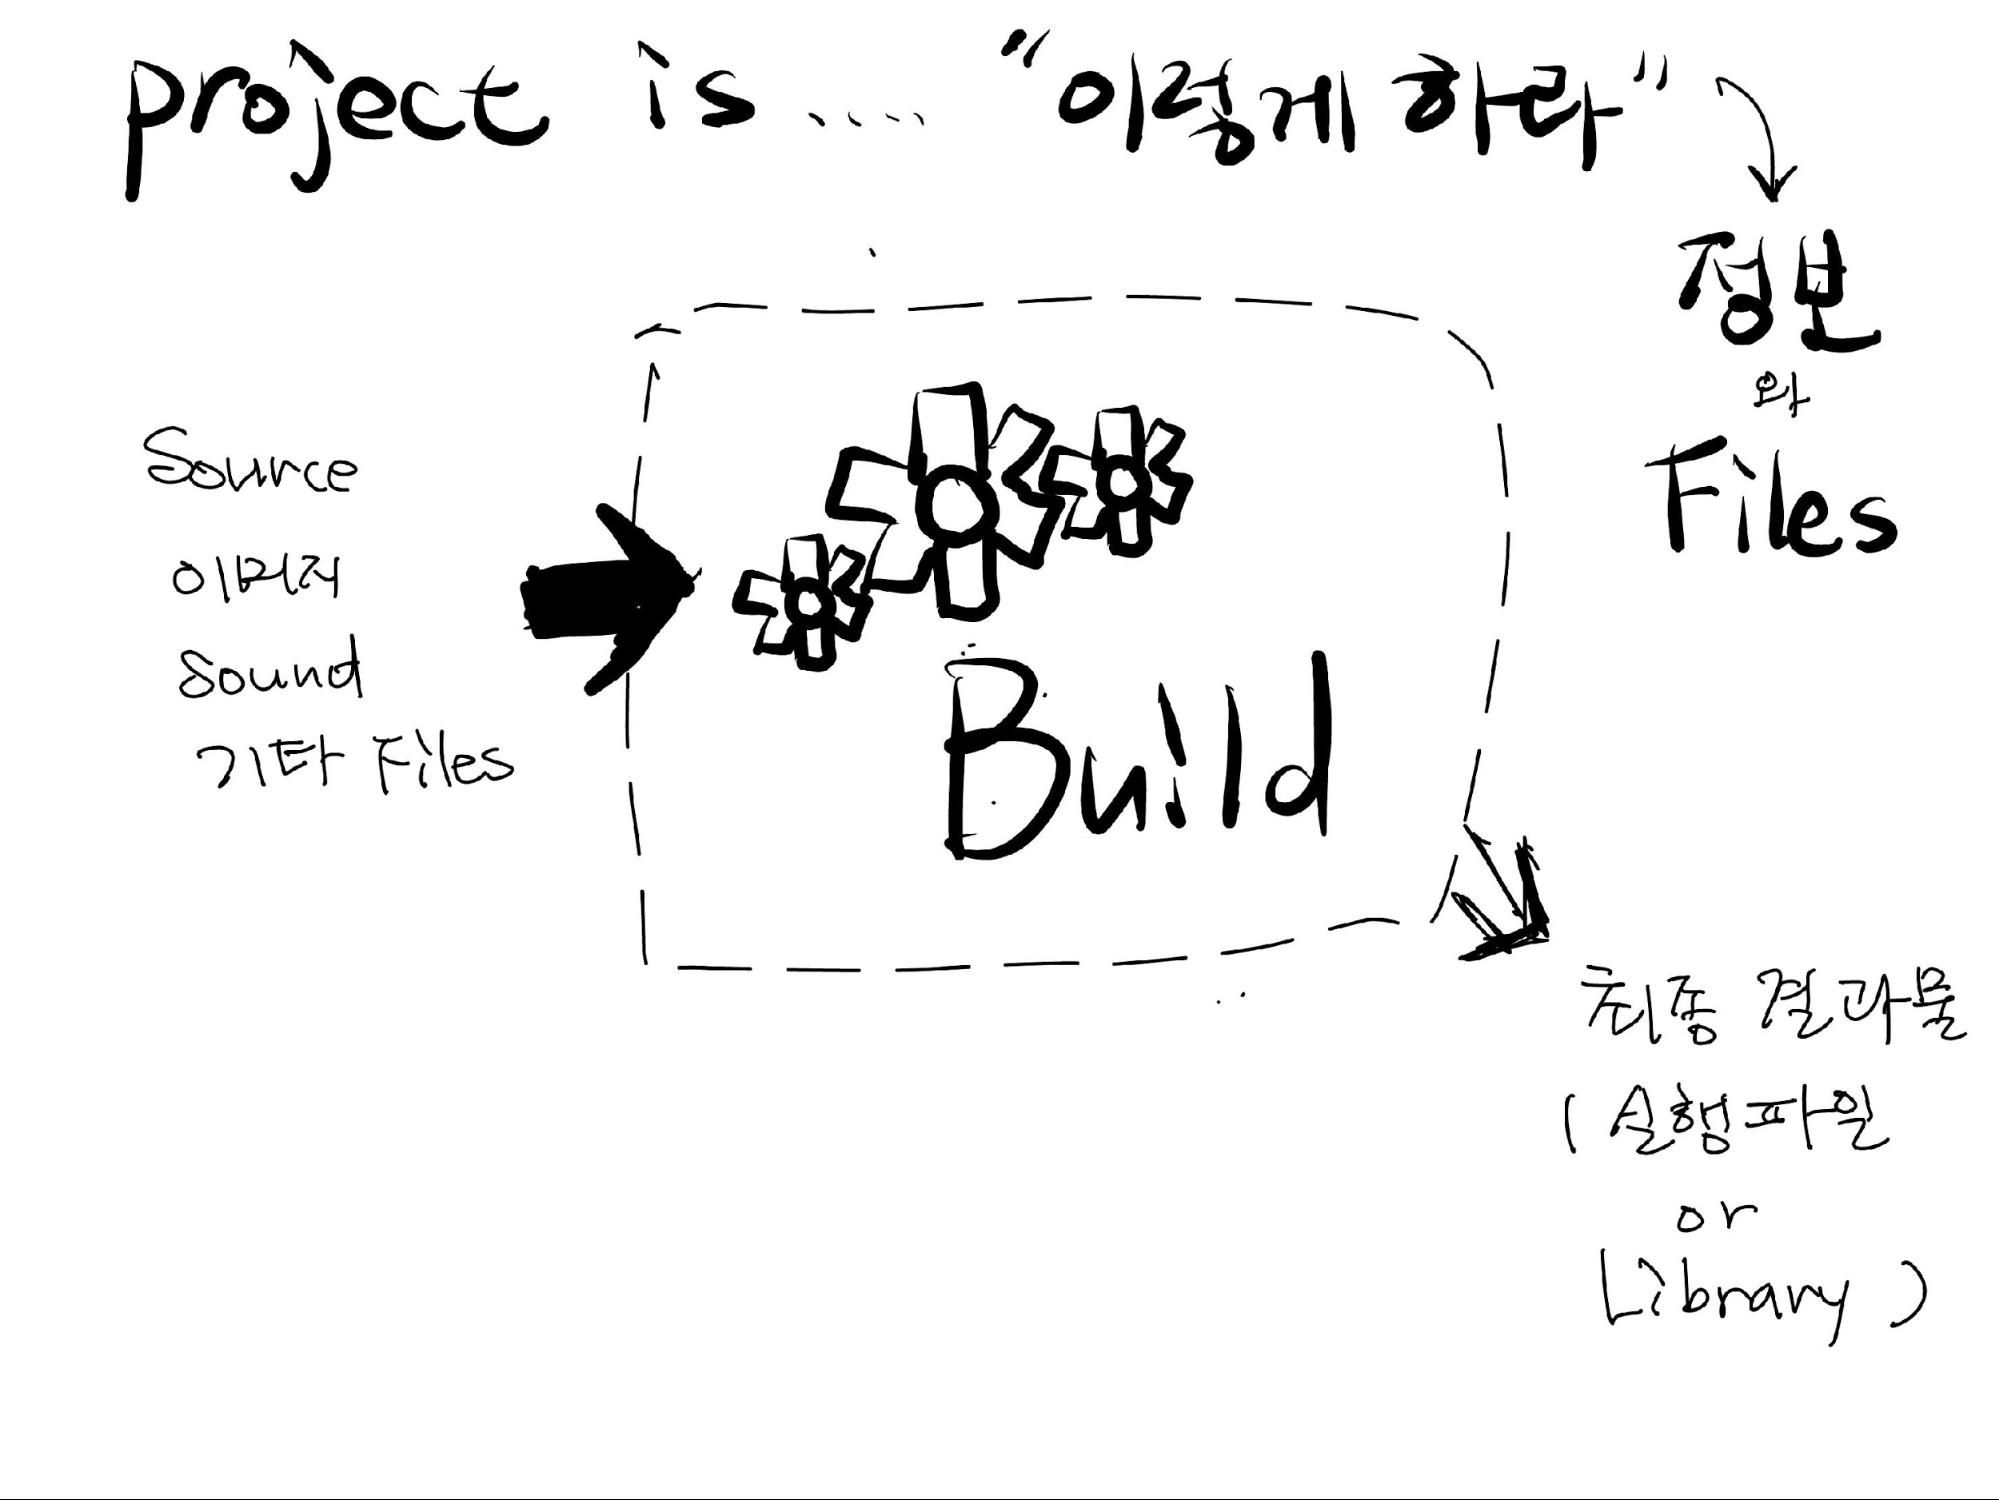 project is .... "이렇게 하라"
정보
와
Files
Source
이미지
Sound
기타 Files
Build
최종 결과물
( 실행파일
or
Library )